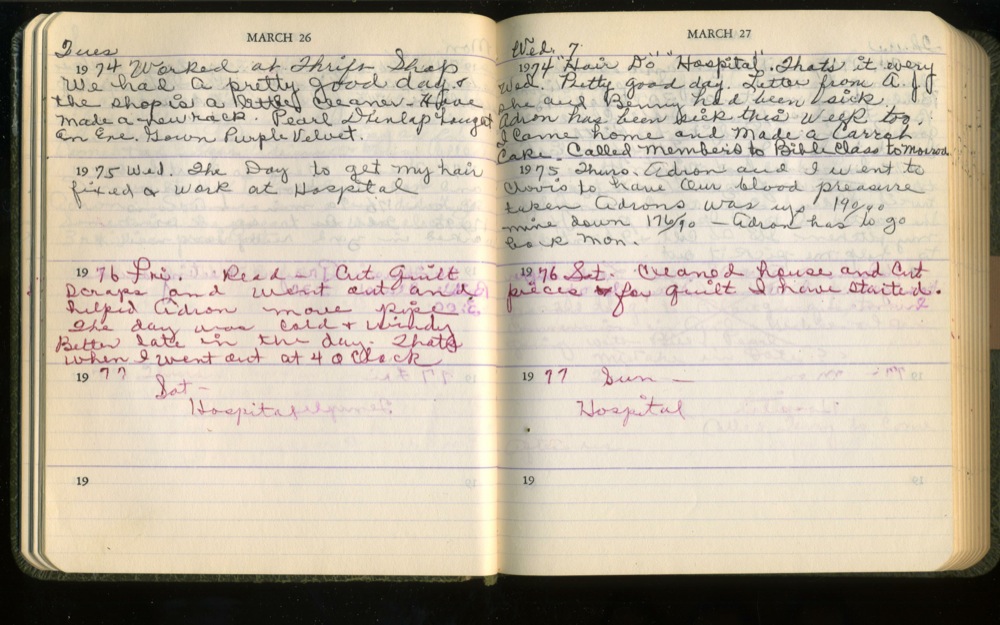 MARCH 26
Tues
1974 Worked at Thrift Shop
We had a pretty good day &
the shop is a Better Cleaner - Have
made a new rack. Pearl Dunlap bought
an Eve. Gown Purple Velvet.
1975 Wed. The Day to get my hair
fixed & work at Hospital
1976 Fri. Read - Cut Quilt
Scraps and went out and
helped Adron move pipe
The day was cold & windy
Better late in the day. Thats
when I went out at 4 O Clock
1977
Sat -
Hospital
19
MARCH 27
Wed. 7
1974 "Hair Do" "Hospital". Thats it every
Wed. Pretty good day. Letter from A.J
she and Benny had been sick.
Adron has been sick this week too.
I came home and made a Carrot
Cake. Called members to Bible Class tomorrow
1975 Thurs. Adron and I went to
Clovis to have Our blood preasure
taken Adrons was up 190/90
mine down 176/90 - Adron has to go
back Mon.
1976 Sat. Cleaned house and Cut
pieces for quilt I have started.
1977 Sun -
Hospital
19